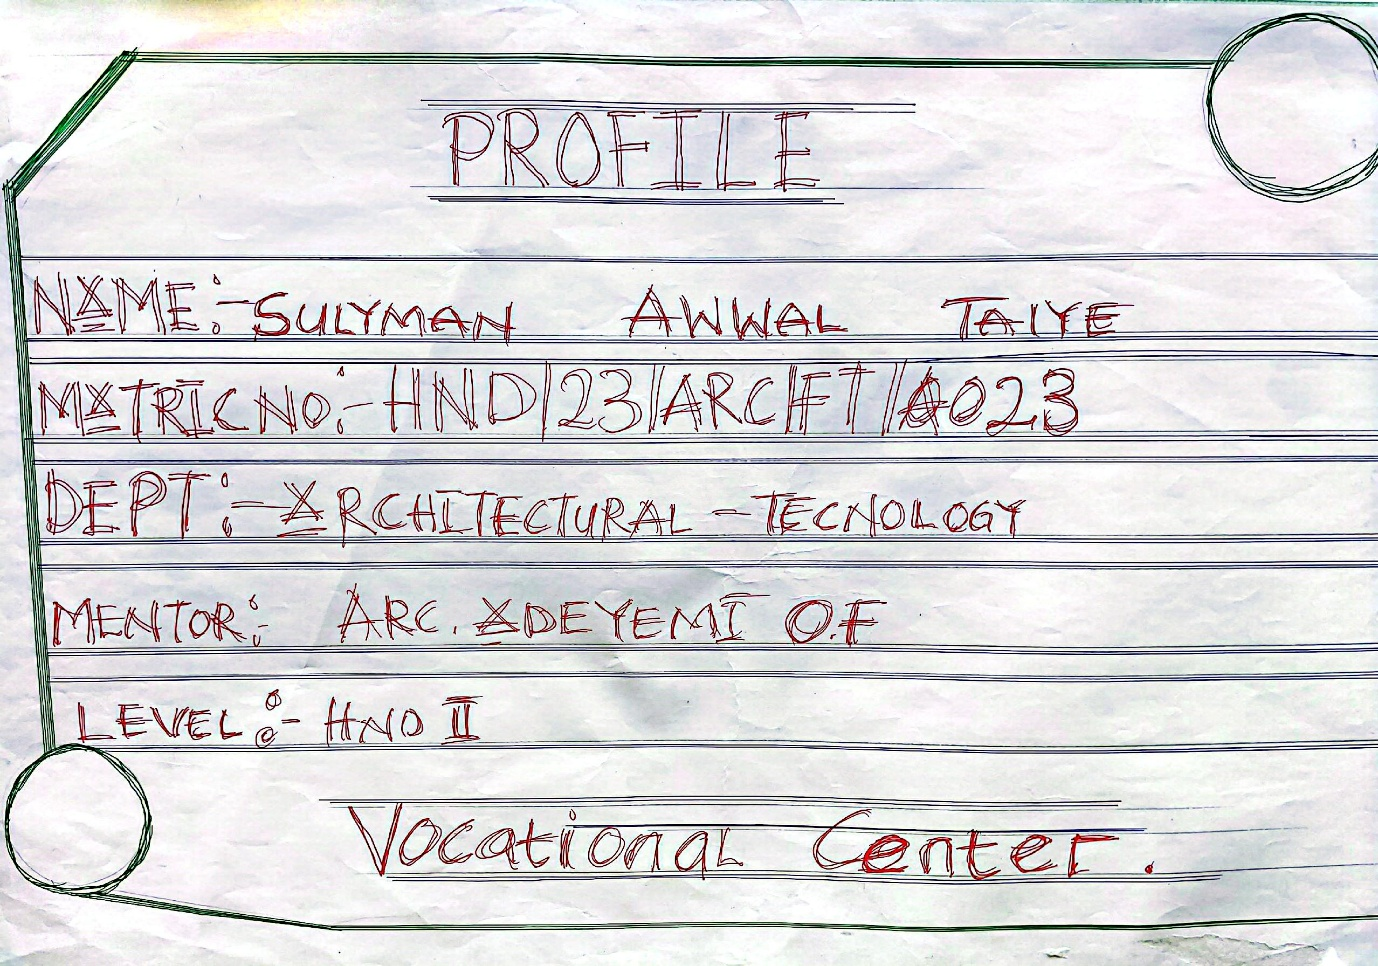 PROFILE
NAME:- SULYMAN AWWAL TAIYE
MATRIC NO:- HND/23/ARC/FT/A023
DEPT:- ARCHITECTURAL - TECNOLOGY
MENTOR: ARC. ADEYEMI O.F
LEVEL:- HND II
Vocational Center.